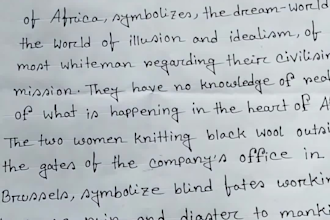 of Africa, symbolizes, the dream-world
the world of illusion and idealism, of
most whiteman regarding their civilisin
mission. They have no knowledge of real
of what is happening in the heart of A
The two women knitting black wool outsi
the gates of the company's office in
Brussels, symbolize blind fates workin
ruin and diaster to manki